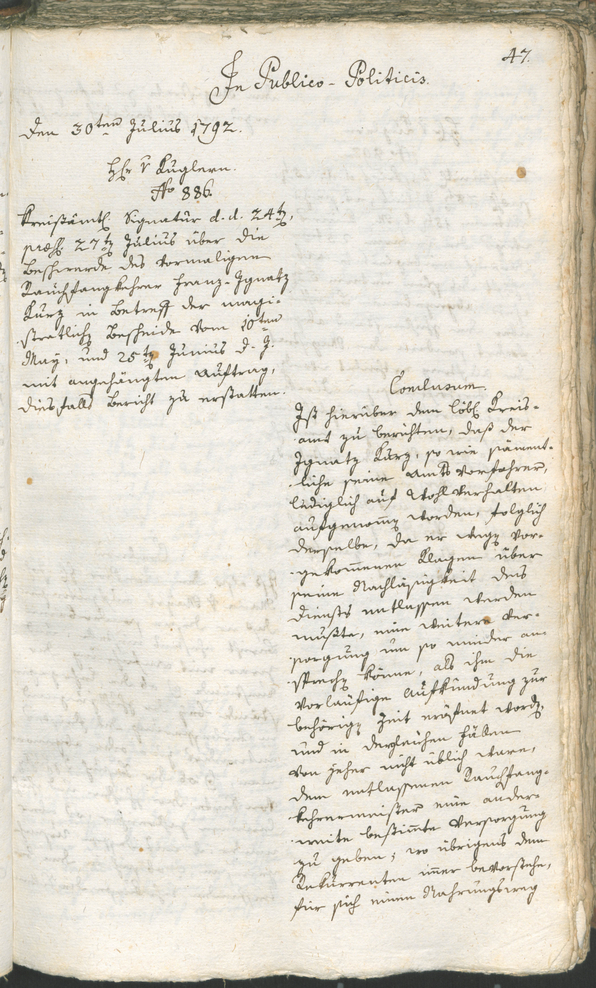 47.
In Publico-Politicis.
Den 30ten Julius 1792.
H. v Kuglern.
No 886.
Kreisämtl. Signatur d. d. 24t,
præs. 27t Julius über die
Beschwerde des vormaligen
Rauchfangkehrer Franz Ignatz
Kurz in Betreff der magi-
stratlich Bescheide vom 10ten
May, und 25t Junius d. J.
mit angehängten Auftrag,
diesfalls Bericht zu erstatten.
Conclusum.
Ist hierüber dem löbl Kreis-
amt zu berichten, daß der
Ignatz Kurz, so wie sämmt-
liche seine Amts Vorfahrer,
lediglich auf Wohlverhalten
aufgenomm worden, folglich
derselbe, da er wegen vor-
gekommenen Klagen über
seine Nachläsigkeit des
Diensts entlassen werden
mußte, eine weitere Ver-
sorgung um so minder an-
sprech könne, als ihm die
vorläufige Aufkündung zur
behörig Zeit eröfnet word,
und in dergleichen Fällen
von jeher nicht üblich ware,
dem entlassenen Rauchfang-
kehrermeister eine ander-
weite bestimte Versorgung
zu geben; wo übrigens dem
Rekurrenten imer bevorstehe,
für sich einen Nahrungsweg